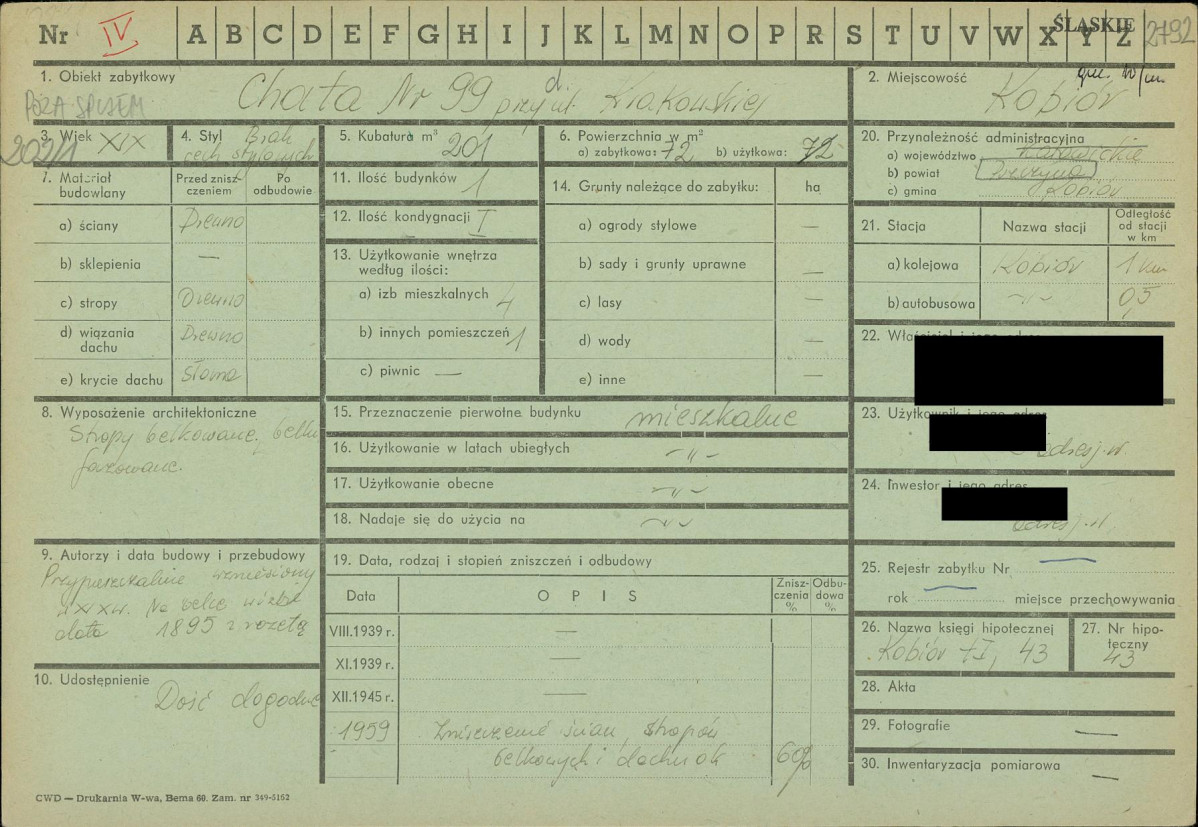 Nr IV A B C D E F G H I J K L M N O P R S T U V W X Y Z ŚLĄSKIE 2792
1. Obiekt zabytkowy
Chata Nr 99 przy ul. Krakowskiej
POZA SPISEM
2. Miejscowość
Kobiór
3. Wiek XIX
4. Styl Brak
cech stylowych
5. Kubatura m³ 201
6. Powierzchnia w m²
a) zabytkowa: 72 b) użytkowa: 72
7. Materiał budowlany
Przed znisz-
czeniem
Po
odbudowie
a) ściany Drewno
b) sklepienia —
c) stropy Drewno
d) wiązania
dachu Drewno
e) krycie dachu Słoma
8. Wyposażenie architektoniczne
Stropy belkowane, belki
fazowane.
9. Autorzy i data budowy i przebudowy
Przypuszczalnie wzniesiony
w XIX w. Na belce widać
data 1895 z rozetą
10. Udostępnienie
Dość dogodne
11. Ilość budynków 1
12. Ilość kondygnacji I
13. Użytkowanie wnętrza
według ilości:
a) izb mieszkalnych 4
b) innych pomieszczeń 1
c) piwnic —
14. Grunty należące do zabytku: ha
a) ogrody stylowe —
b) sady i grunty uprawne —
c) lasy —
d) wody —
e) inne —
15. Przeznaczenie pierwotne budynku mieszkalne
16. Użytkowanie w latach ubiegłych -"-
17. Użytkowanie obecne -"-
18. Nadaje się do użycia na -"-
19. Data, rodzaj i stopień zniszczeń i odbudowy
Data OPIS Znisz-
czenia
% Odbu-
dowa
%
VIII.1939 r. —
XI.1939 r. —
XII.1945 r. —
1959 Zniszczenie ścian, stropów
belkowych i dachu ok 60%
20. Przynależność administracyjna
a) województwo Katowickie
b) powiat Pszczyna
c) gmina Kobiór
21. Stacja Nazwa stacji Odległość
od stacji
w km
a) kolejowa Kobiór 1 km
b) autobusowa -"- 0,5
22.
23.
adres j.w.
24. Inwestor i jego adres
adres j.w.
25. Rejestr zabytku Nr —
rok — miejsce przechowywania
26. Nazwa księgi hipotecznej
Kobiór tI, 43
27. Nr hipo-
teczny
43
28. Akta
29. Fotografie —
30. Inwentaryzacja pomiarowa —
CWD — Drukarnia W-wa, Bema 60. Zam. nr 349-5152